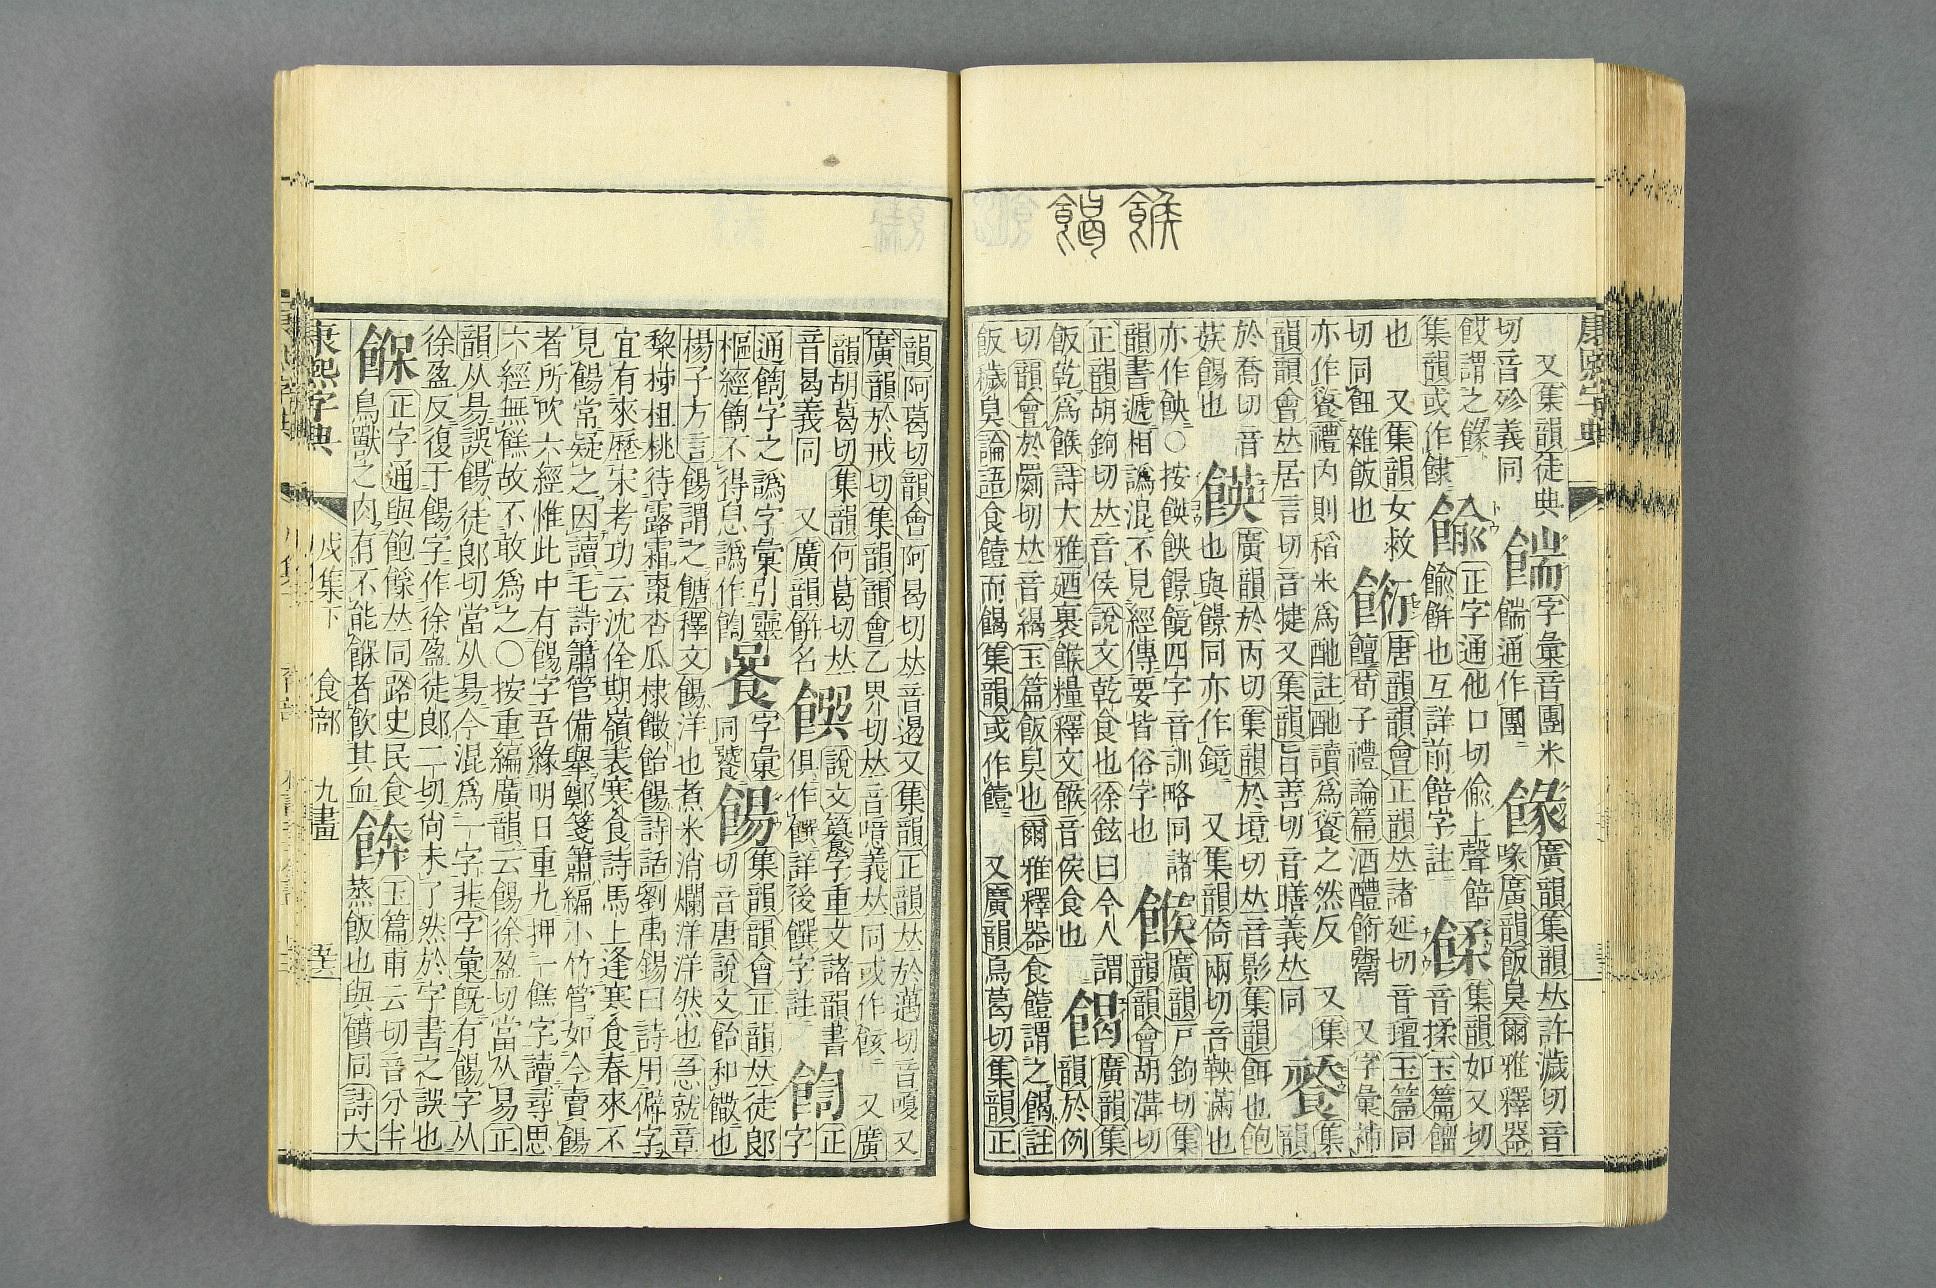 康熙字典
又集韻徒典 字彙音團米 餯廣韻集韻𠀤許濊切音
切音殄義同 通作團 喙廣韻飯臭爾雅釋器
餀謂之餯 正字通他口切偷上聲 餻 集韻如又切
集韻或作 餅也互詳前 字註 音揉玉篇
也 又集韻女救 餰唐韻韻會正韻𠀤諸延切音 玉篇同
切同飷雜飯也 饘荀子禮論篇酒醴餰鬻 又字彙補
亦作 禮內則稻米爲酏註酏讀爲餰之然反 又集
韻韻會𠀤居言切音犍又集韻旨善切音膳義𠀤同
於喬切音 廣韻於丙切集韻於境切𠀤音影集韻餌也飽
餳也 也與 同亦作 又集韻倚兩切音鞅滿也
亦作 ○按 四字音訓略同諸 餱廣韻戸鉤切集
韻書遞相譌混不見經傳要皆俗字也 韻韻會胡溝切
正韻胡鉤切𠀤音侯說文乾食也徐鉉曰今人謂 餲廣韻集
飯乾爲餱詩大雅廼裹餱糧釋文餱音侯食也 韻於例
切韻會於罽切𠀤音 玉篇飯臭也爾雅釋器食饐謂之餲註
飯穢臭論語食饐而餲集韻或作饐 又廣韻烏葛切集韻正
韻阿葛切韻會阿曷切𠀤音遏又集韻正韻𠀤於邁切音嗄又
廣韻於戒切集韻韻會乙界切𠀤音噫義𠀤同或作餩 又廣
韻胡葛切集韻何葛切𠀤 饌說文 字重文諸韻書 正
音曷義同 又廣韻餅名 俱作饌詳後饌字註 字
通 字之譌字彙引靈 字彙 餳集韻韻會正韻𠀤徒郞
樞經 不得息譌作 同饕 切音唐說文飴和饊也
楊子方言餳謂之餹釋文餳洋也煮米消爛洋洋然也急就章
棃柹柤桃待露霜棗杏瓜棣饊飴餳詩話劉禹錫曰詩用僻字
宜有來歷宋考功云 嶺表寒食詩馬上逢寒食春來不
見餳常疑之因讀毛詩簫管備舉鄭箋簫編小竹管如今賣餳
者所吹六經惟此中有餳字吾緣明日重九押一餻字讀尋思
六經無餻故不敢爲之○按重編廣韻云餳徐盈切當从易正
韻从昜誤餳徒郞切當从昜今混爲一字非字彙旣有餳字从
徐盈反復于餳字作徐盈徒郞二切尙未了然於字書之誤也
正字通與飽 𠀤同路史民食 玉篇甫云切音分半
鳥獸之内有不能 者飲其血 蒸飯也與饙同詩大
康熙字典 戌集下 食部 九畫